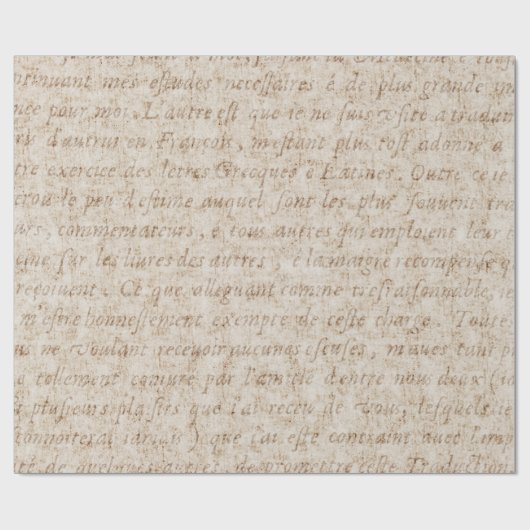 continuant mes estudes necessaires é de plus grande im
née pour moi. L'autre est que ie ne suis usité a traduir
d'autrui en François, m'estant plus tost adonné a
tre exercice des letres Grecques é Latines. Outre ce ie
le peu d'estime auquel sont les plus souuent tra
urs, commentateurs, é tous autres qui emploient leur t
cine sur les liures des autres, é la maigre recompense q
reçoiuent. Ce que alleguant comme tresraisonnable, ie
m'estre honnestement exempté de ceste charge. Toute
us ne voulant receuoir aucunes escuses, m'aues tant p
a tellement coniuré par l'amitié d'entre nous deux (io
t plusieurs plaisirs que i'ai receu de vous, lesquels ie
connoiterai iamais) que i'ai esté contraint auec l'imp
té de quelques autres, de promettre ceste Traduction